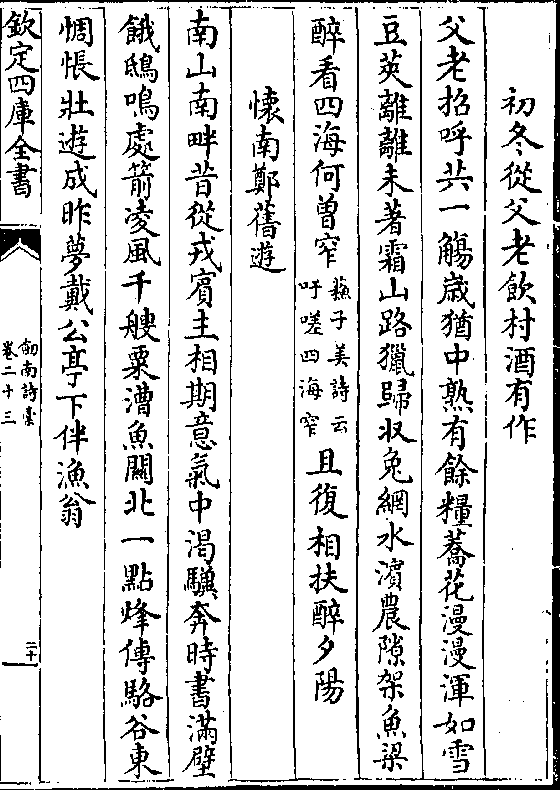 初冬從父老飲村酒有作
父老招呼共一觴歳猶中熟有餘糧蕎花漫漫渾如雪
豆莢離離未著霜山路獵歸収兔網水濱農隙架魚梁
醉看四海何曽窄蘇子美詩云吁嗟四海窄且復相扶醉夕陽
懐南鄭舊遊
南山南畔昔從戎賓主相期意氣中渴驥奔時書滿壁
餓鴟鳴處箭凌風千艘粟漕魚關北一點烽傳駱谷東
惆悵壯遊成昨夢戴公亭下伴漁翁
欽定四庫全書
劒南詩稾
卷二十三
二十